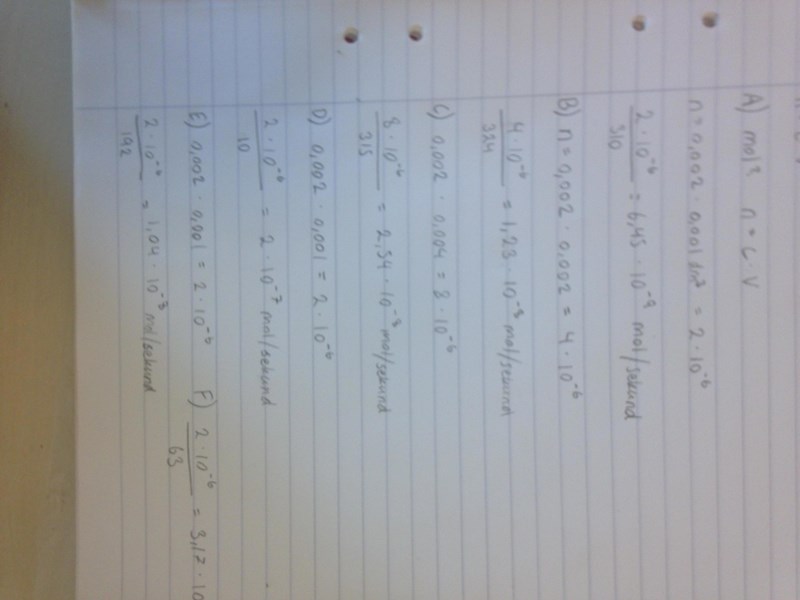 A) mol? n = c · V
n = 0,002 · 0,001 dm³ = 2 · 10⁻⁶
2 · 10⁻⁶ / 310 = 6,45 · 10⁻⁹ mol/sekund
B) n = 0,002 · 0,002 = 4 · 10⁻⁶
4 · 10⁻⁶ / 324 = 1,23 · 10⁻⁸ mol/sekund
C) 0,002 · 0,004 = 8 · 10⁻⁶
8 · 10⁻⁶ / 315 = 2,54 · 10⁻⁸ mol/sekund
D) 0,002 · 0,001 = 2 · 10⁻⁶
2 · 10⁻⁶ / 10 = 2 · 10⁻⁷ mol/sekund
E) 0,002 · 0,001 = 2 · 10⁻⁶
2 · 10⁻⁶ / 192 = 1,04 · 10⁻⁸ mol/sekund
F) 2 · 10⁻⁶ / 63 = 3,17 · 10